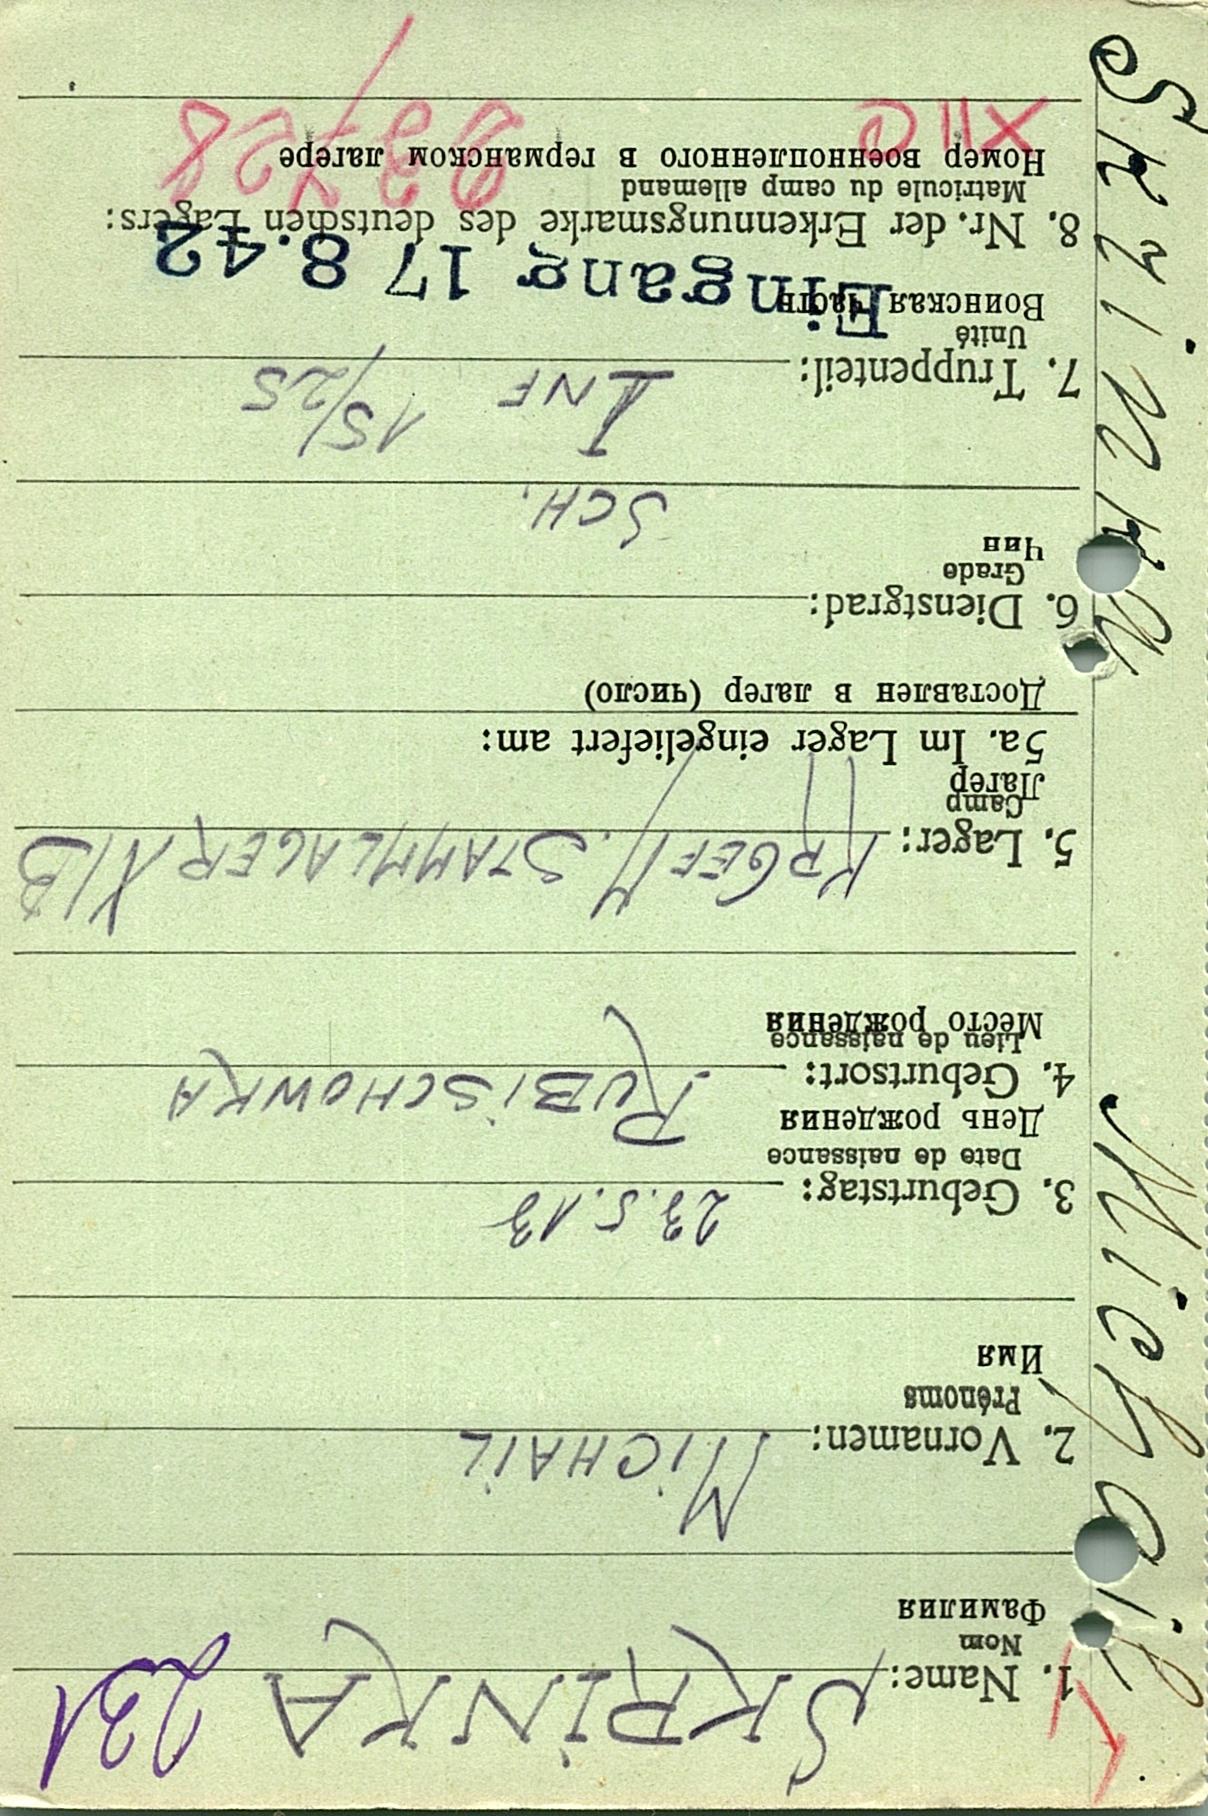 1. Name: SKRINKA 231
Nom
Фамилия
2. Vornamen: MICHAIL
Prénoms
Имя
3. Geburtstag: 23.5.13
Date de naissance
День рождения
4. Geburtsort: RUBISCHOWKA
Lieu de naissance
Место рождения
5. Lager: KRGEF M. STAMMLAGER XIB
Camp
Лагер
5a. Im Lager eingeliefert am:
Доставлен в лагер (число)
6. Dienstgrad: SCH.
Grade
Чин
7. Truppenteil: INF 15/25
Unité
Воинская часть
Eingang 17 8.42
8. Nr. der Erkennungsmarke des deutschen Lagers:
Matricule du camp allemand
Номер военнопленного в германском лагере
XII
Skrinka Michail